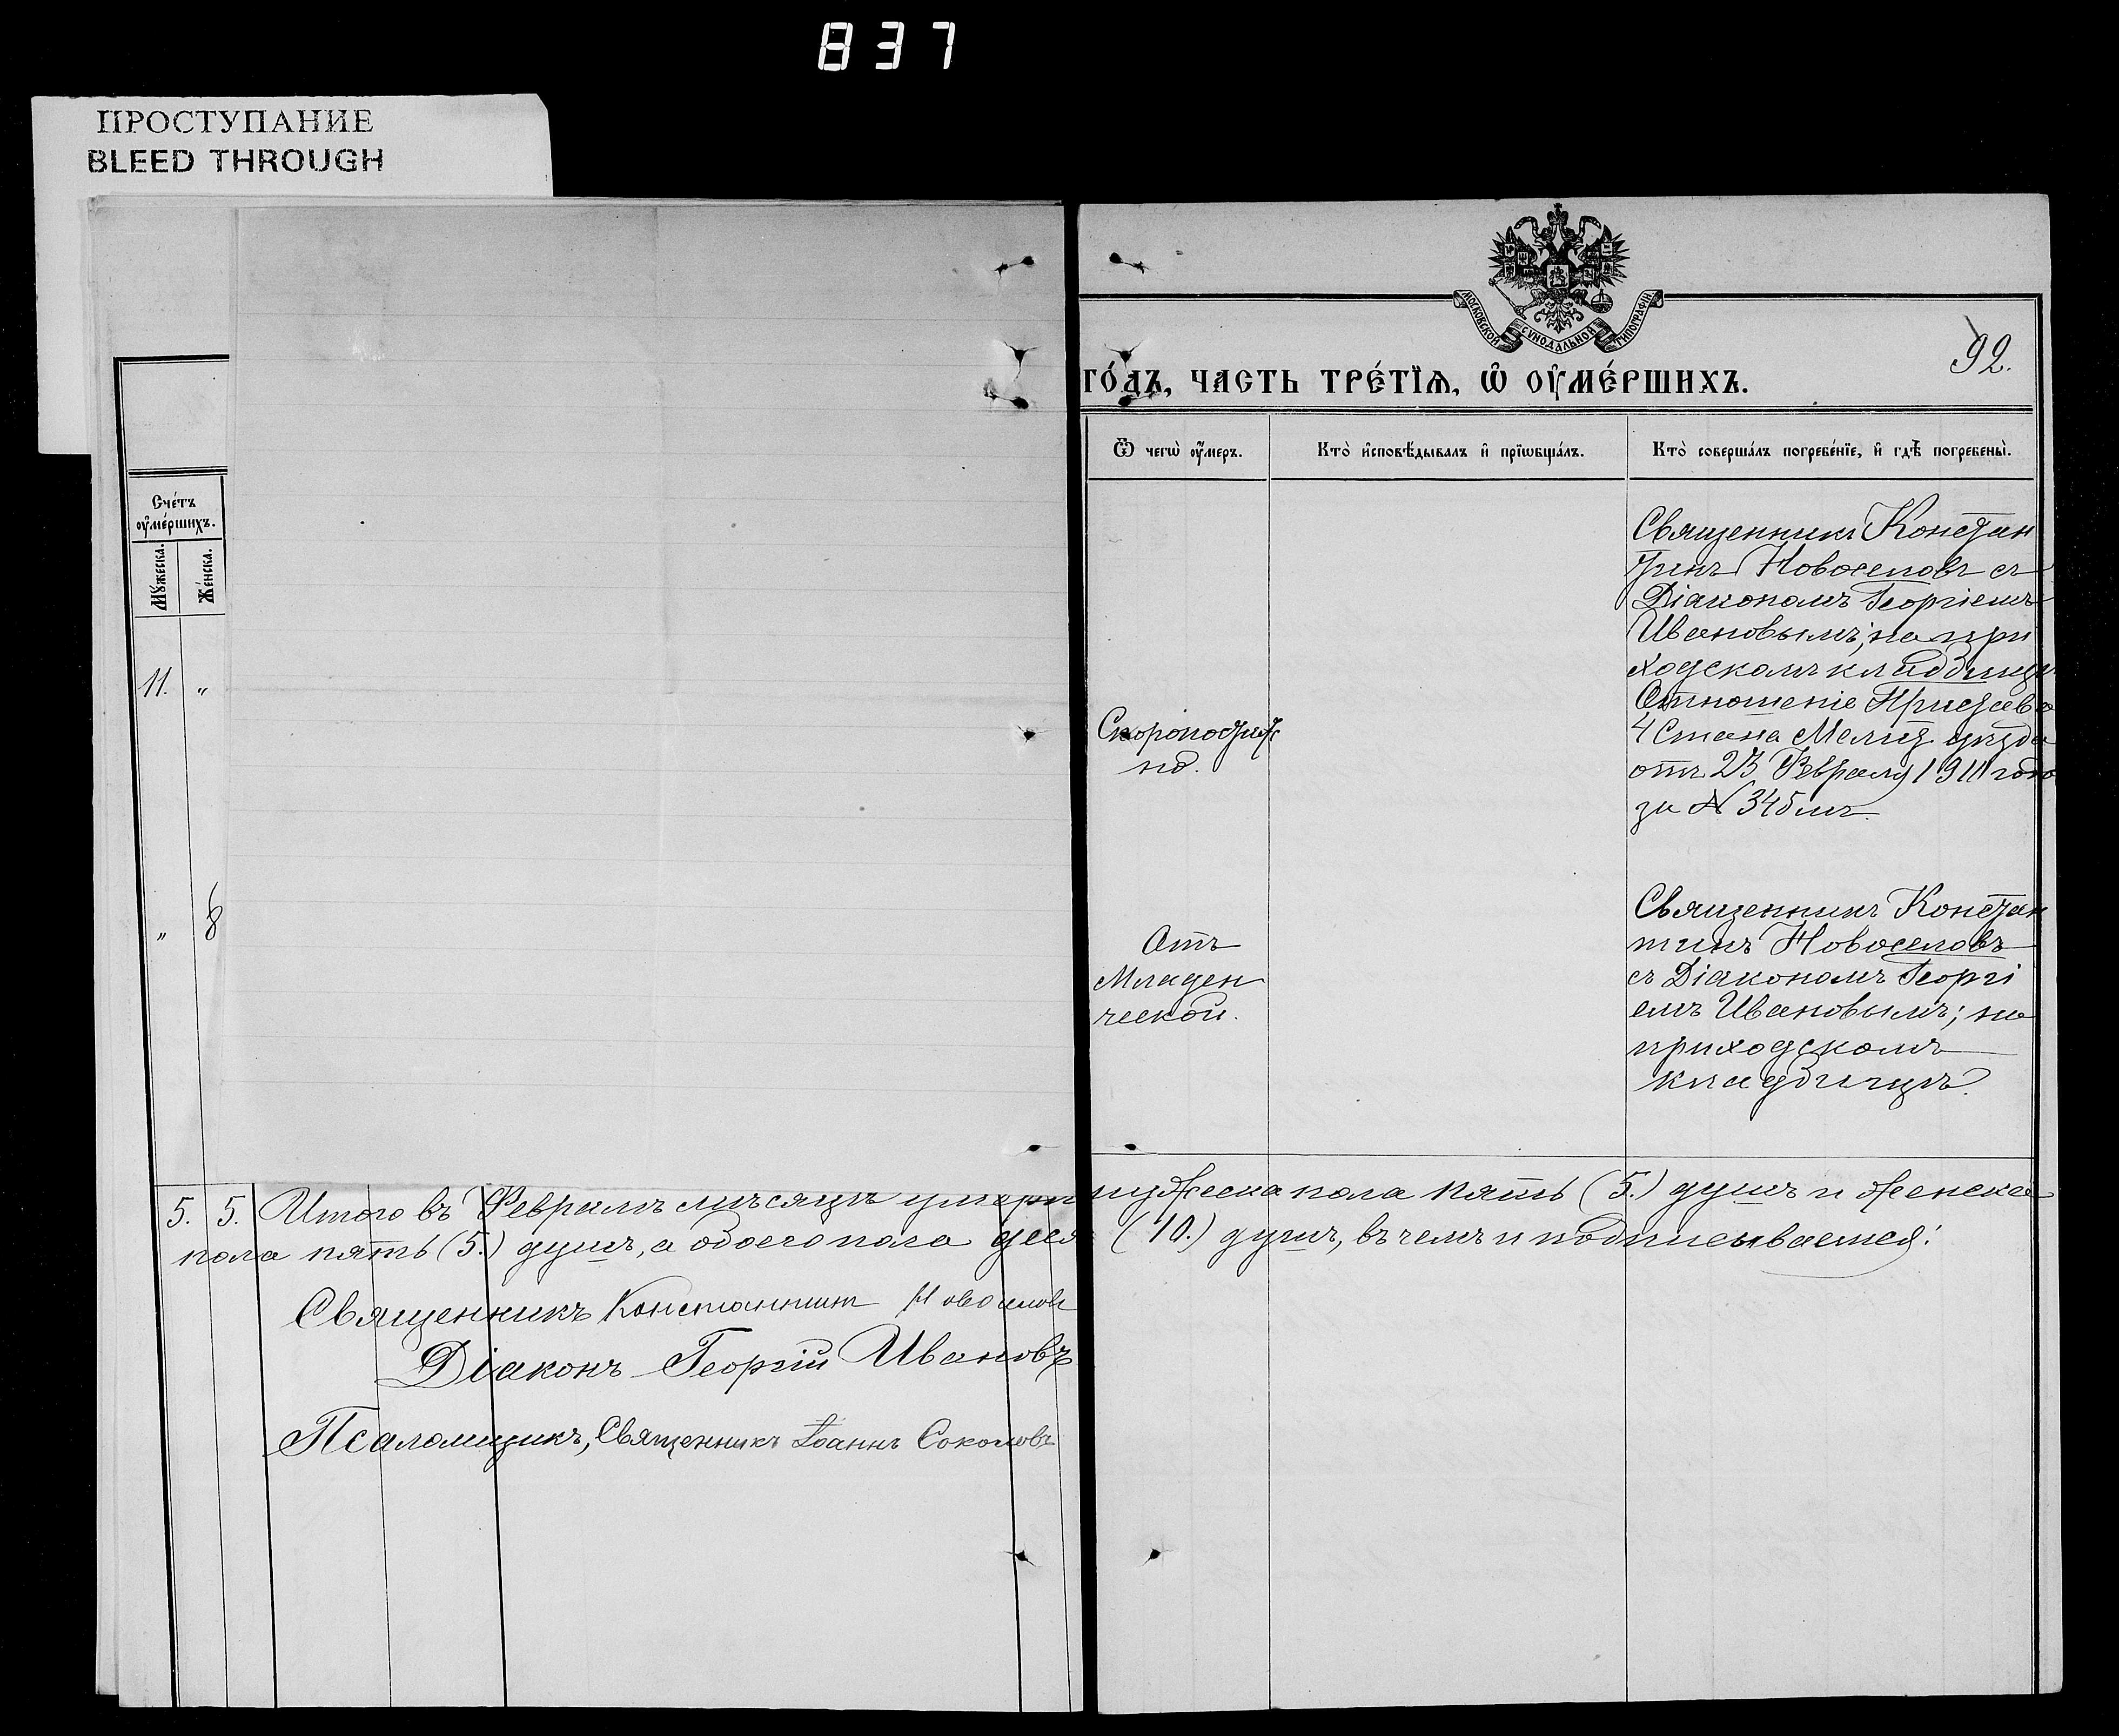 837
ПРОСТУПАНИЕ
BLEED THROUGH
МОСКОВСКОЙ СѴНОДАЛЬНОЙ ТИПОГРАФІИ
92.
ГО́ДЪ, ЧАСТЬ ТРЕ́ТІѦ, Ѡ҆ ОУ҆МЕ́РШИХЪ.
Сче́тъ
оу҆ме́ршихъ.
Мꙋ́жеска.
Же́нска.
Ѿ чегѡ̀ оу҆́меръ.
Кто̀ и҆сповѣ́дывалъ и҆ прїѡбща́лъ.
Кто̀ соверша́лъ погребе́нїе, и҆ гдѣ̀ погребены̀.
11. „
Скоропостиж
но.
Священникъ Констан
тинъ Новоселовъ съ
Діакономъ Георгіемъ
Ивановымъ; на при
ходскомъ кладбищѣ
Отношеніе Пристава
4 Стана Мелит. уѣзда
отъ 23 Февраля 1911 года
за № 345мъ.
„ 8
Отъ
Младен
ческой.
Священникъ Констан
тинъ Новоселовъ
съ Діакономъ Георгі
емъ Ивановымъ; на
приходскомъ
кладбищѣ.
5. 5. Итого въ Февралѣ мѣсяцѣ умерли мужеска пола пять (5.) душъ и женска
пола пять (5.) душъ, а обоего пола деся (10.) душъ, въ чемъ и подписываемся:
Священникъ Константинъ Новоселовъ
Діаконъ Георгій Ивановъ
Псаломщикъ, Священникъ Іоаннъ Соколовъ